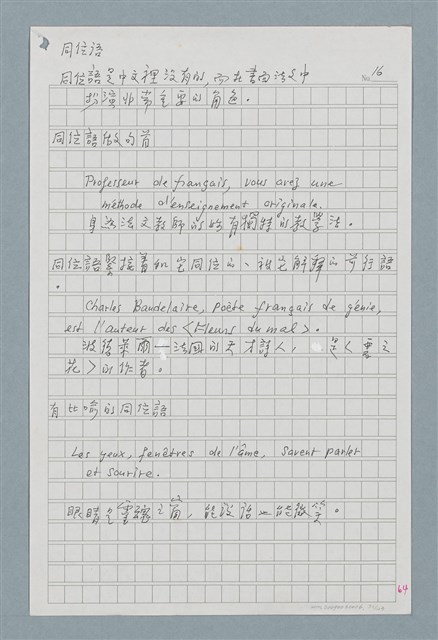 同位語
同位語是中文裡沒有的,而在書面法文中
No. 16
扮演非常重要的角色。
同位語做句首
Professeur de français, vous avez une
méthode d'enseignement originale.
身為法文教師的你有獨特的教學法。
同位語緊接著和它同位的、被它解釋的前行語
。
Charles Baudelaire, poète français de génie,
est l'auteur des <Fleurs du mal>.
波德萊爾—法國的天才詩人, 是<惡之
花>的作者。
有比喻的同位語
Les yeux, fenêtres de l'âme, savent parler
et sourire.
眼睛是靈魂之窗,能說話也能微笑。
64